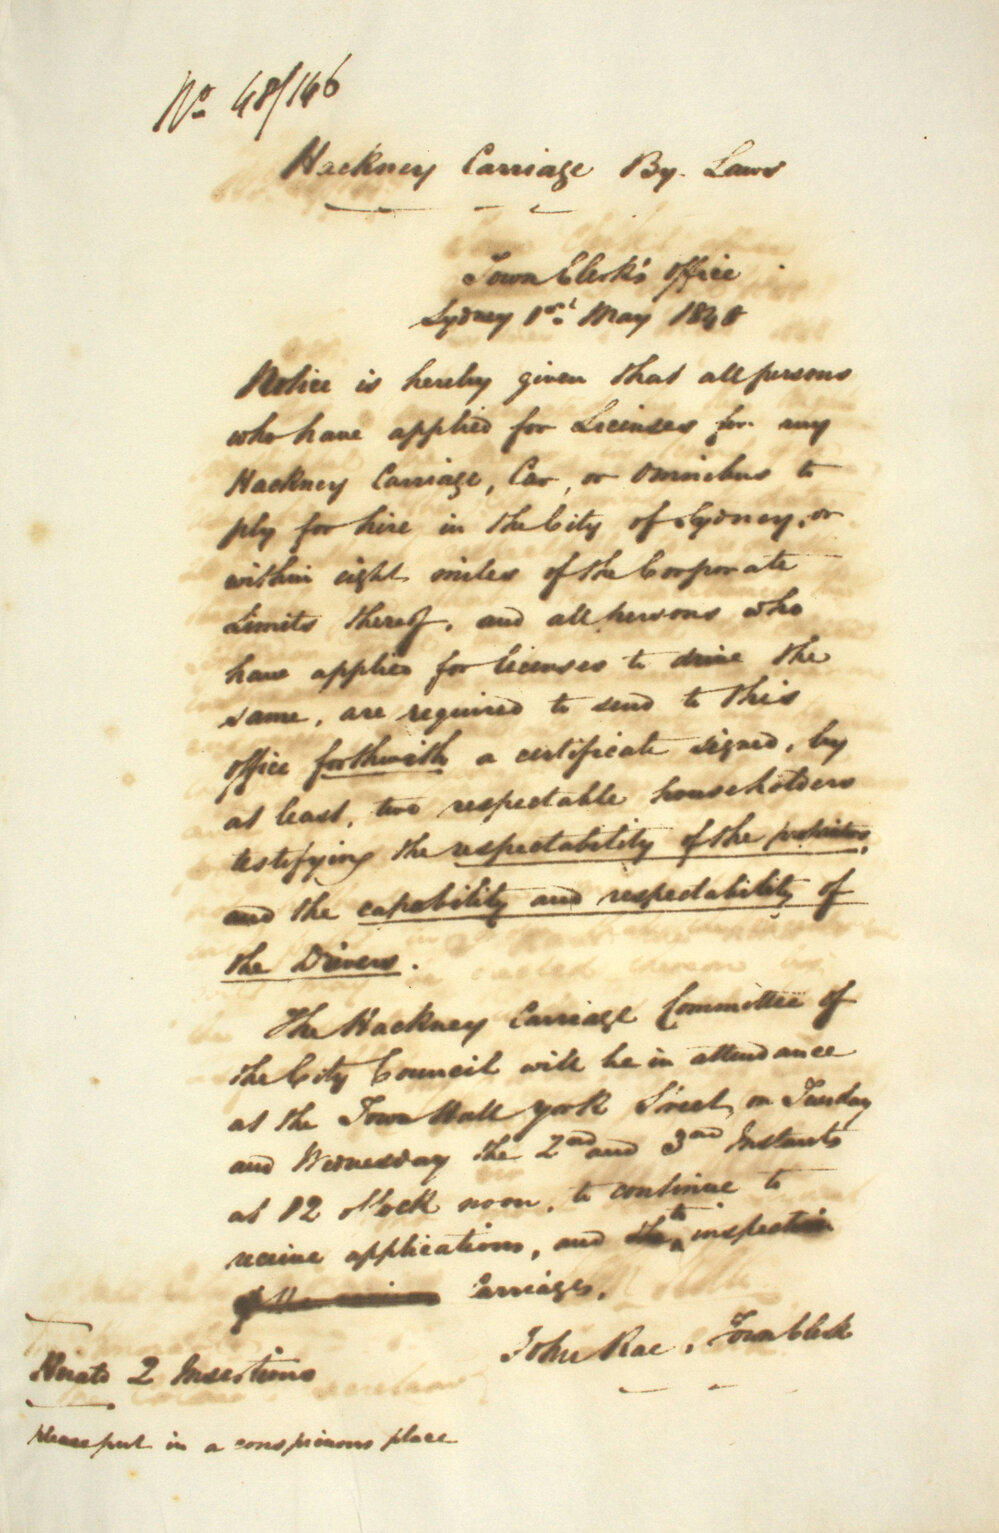 No. 48/146
Hackney Carriage By. Laws
Town Clerk's Office
Sydney 1st May 1848
Notice is hereby given that all persons
who have applied for Licenses for any
Hackney Carriage, Car, or Omnibus to
ply for hire in the City of Sydney, or
within eight miles of the Corporate
Limits thereof, and all persons who
have applied for licenses to drive the
same, are required to send to this
office forthwith a certificate signed, by
at least, two respectable householders
testifying the respectability of the
and the capability and respectability of
the Drivers.
The Hackney Carriage Committee of
the City Council will be in attendance
at the Town Hall York Street, on Tuesday
and Wednesday the 2nd and 3rd Instants
at 12 o'Clock noon, to continue to
receive applications, and to inspect
Carriages.
John Rae, Town Clerk
Herald 2 Insertions
Please put in a conspicuous place